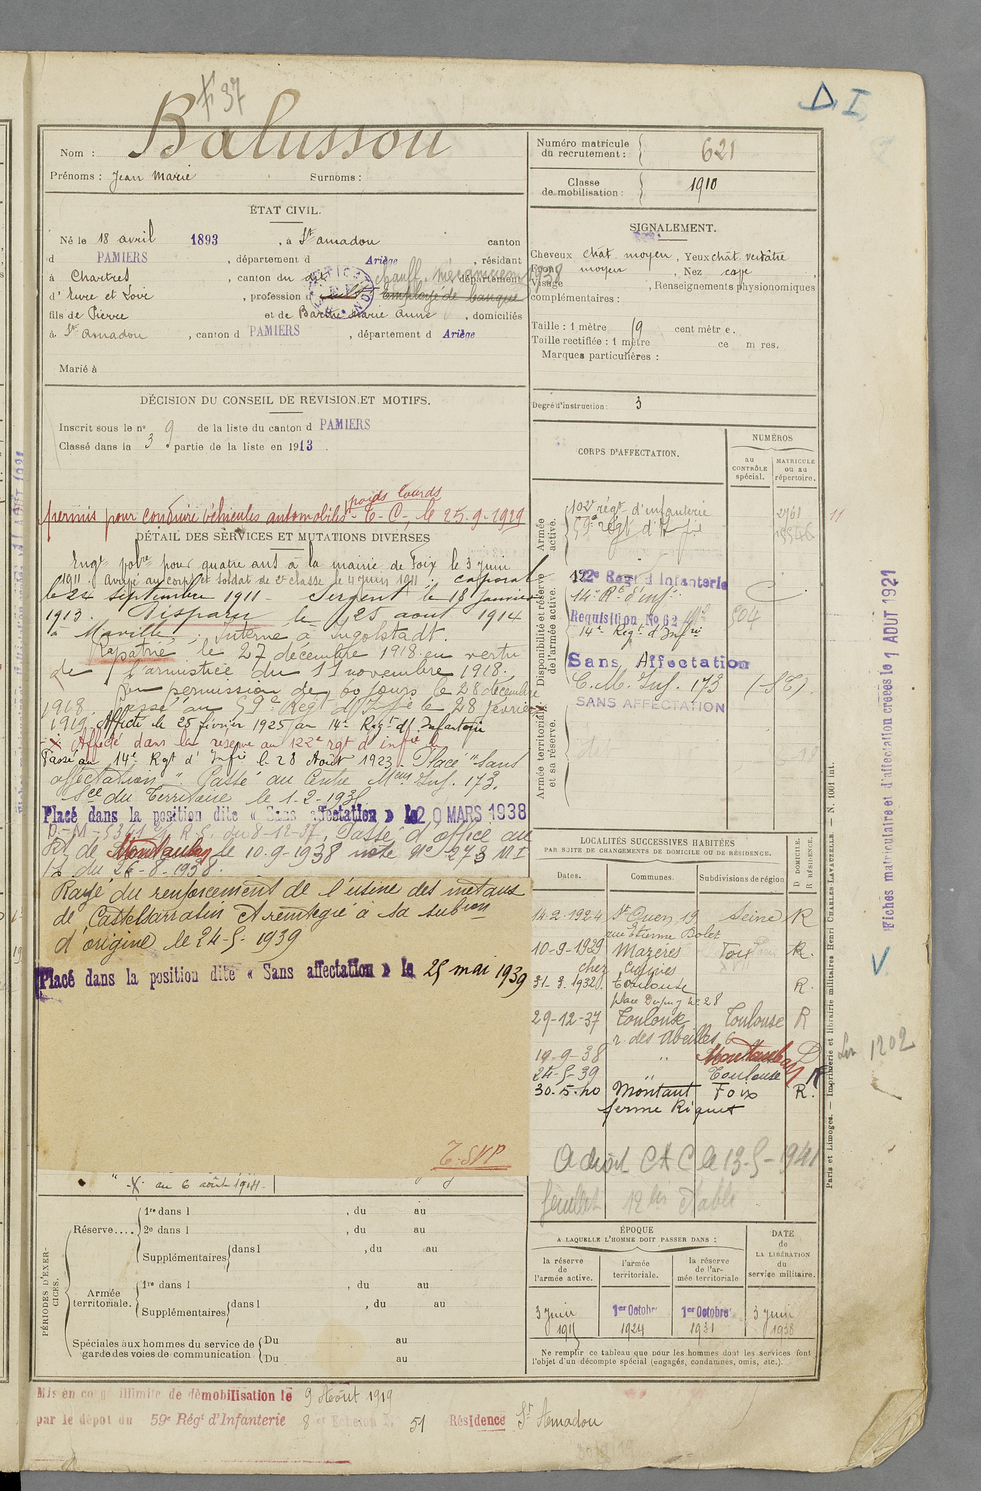 37
D. I.
Balussou
Nom :
Prénoms : Jean Marie Surnoms :
Numéro matricule du recrutement : 621
Classe de mobilisation : 1910
ÉTAT CIVIL.
Né le 18 avril 1893, à St amadou canton
d PAMIERS, département d Ariège, résidant
à Chartres, canton du dit département
chauff. mécanicien 1938
d'Eure et Loir, profession d employé de banque
fils de Pierre et de Barthe Marie Anne, domiciliés
à St Amadou, canton d PAMIERS, département d Ariège
Marié à
SIGNALEMENT.
Cheveux chat. moyen, Yeux chat. verdâtre
Front moyen, Nez cave
Visage , Renseignements physionomiques
complémentaires :
Taille : 1 mètre 19 cent mètr e.
Taille rectifiée : 1 mètre ce m res.
Marques particulières :
Degré d'instruction : 3
DÉCISION DU CONSEIL DE REVISION ET MOTIFS.
Inscrit sous le n° 9 de la liste du canton d PAMIERS
Classé dans la 3 partie de la liste en 1913
poids lourds
permis pour conduire véhicules automobiles - T-C, le 25-9-1929
DÉTAIL DES SERVICES ET MUTATIONS DIVERSES
Engt volre pour quatre ans à la mairie de Foix le 3 juin
1911. Arrivé au corps et soldat de 2e classe le 4 juin 1911. caporal
le 24 septembre 1911. Sergent le 18 janvier
1913. Disparu le 25 août 1914
à Marville interné à Ingolstadt.
Rapatrié le 27 décembre 1918 en vertu
de l'armistice du 11 novembre 1918.
En permission de 60 jours le 28 décembre
1918. passé au 59e Regt d'Inf le 28 février
1919. Affecté le 25 février 1925 au 14e Regt d'Infanterie
Affecté dans la réserve au 122e rgt d'infie
Passé au 14e Rgt d'Infie le 28 Août 1923. Placé "sans
affectation". Passé au Centre Mom Inf. 173.
Sce du Territoire le 1-2-193
Placé dans la position dite « Sans affectation » le 20 MARS 1938
Passé d'office au
Dt de Montauban le 10-9-1938 note No 273 M I
du 26-8-1938.
Rayé du renforcement de l'usine des métaux
de Castelsarrasin et réintégré à sa subion
d'origine le 24-5-1939
Placé dans la position dite « Sans affectation » le 25 mai 1939
T.SVP
au 6 août 1914.
CORPS D'AFFECTATION.
NUMÉROS
au CONTRÔLE spécial.
MATRICULE ou au répertoire.
Armée active.
Disponibilité et réserve de l'armée active.
Armée territoriale et sa réserve.
59e régt d'Inf
2761
122e Regt d'Infanterie
14e Rt d'inf.
Requisition No 62 804
14e Regt d'Infrie
Sans Affectation
C. M. Inf. 173
SANS AFFECTATION
LOCALITÉS SUCCESSIVES HABITÉES
PAR SUITE DE CHANGEMENTS DE DOMICILE OU DE RÉSIDENCE.
Dates. Communes. Subdivisions de région D. DOMICILE. R. RÉSIDENCE.
14-2-1924 St Ouen 19 Seine R
rue Etienne Dolet
10-9-1929 Mazères Foix R.
chez
31-3-1932 Toulouse R.
place Dupuy No 28
29-12-37 Toulouse Toulouse R
r. des Abeilles 6
19-9-38 " Montauban D
24-5-39 " Toulouse R
30-5-40 Montaut Foix R.
ferme Riquet
A droit C A C le 13-5-1941
ÉPOQUE
A LAQUELLE L'HOMME DOIT PASSER DANS :
la réserve de l'armée active.
l'armée territoriale.
la réserve de l'armée territoriale
DATE de LA LIBÉRATION du service militaire.
3 juin 1915
1er Octobre 1924
1er Octobre 1931
3 juin 1938
Ne remplir ce tableau que pour les hommes dont les services font
l'objet d'un décompte spécial (engagés, condamnés, omis, etc.).
PÉRIODES D'EXERCICES.
Réserve....
1re dans l , du au
2e dans l , du au
Supplémentaires dans l , du au
Armée territoriale.
1re dans l , du au
Supplémentaires dans l , du au
Spéciales aux hommes du service de garde des voies de communication
Du au
Du au
Mis en congé illimité de démobilisation le 9 Août 1919
par le dépôt du 59e Régt d'Infanterie 8e Echelon N° 51 Résidence St Amadou
Fiches matriculaire et d'affectation créées le 1 AOUT 1921
1202
Paris et Limoges. — Imprimerie et librairie militaires Henri CHARLES-LAVAUZELLE. — N. 1001 int.